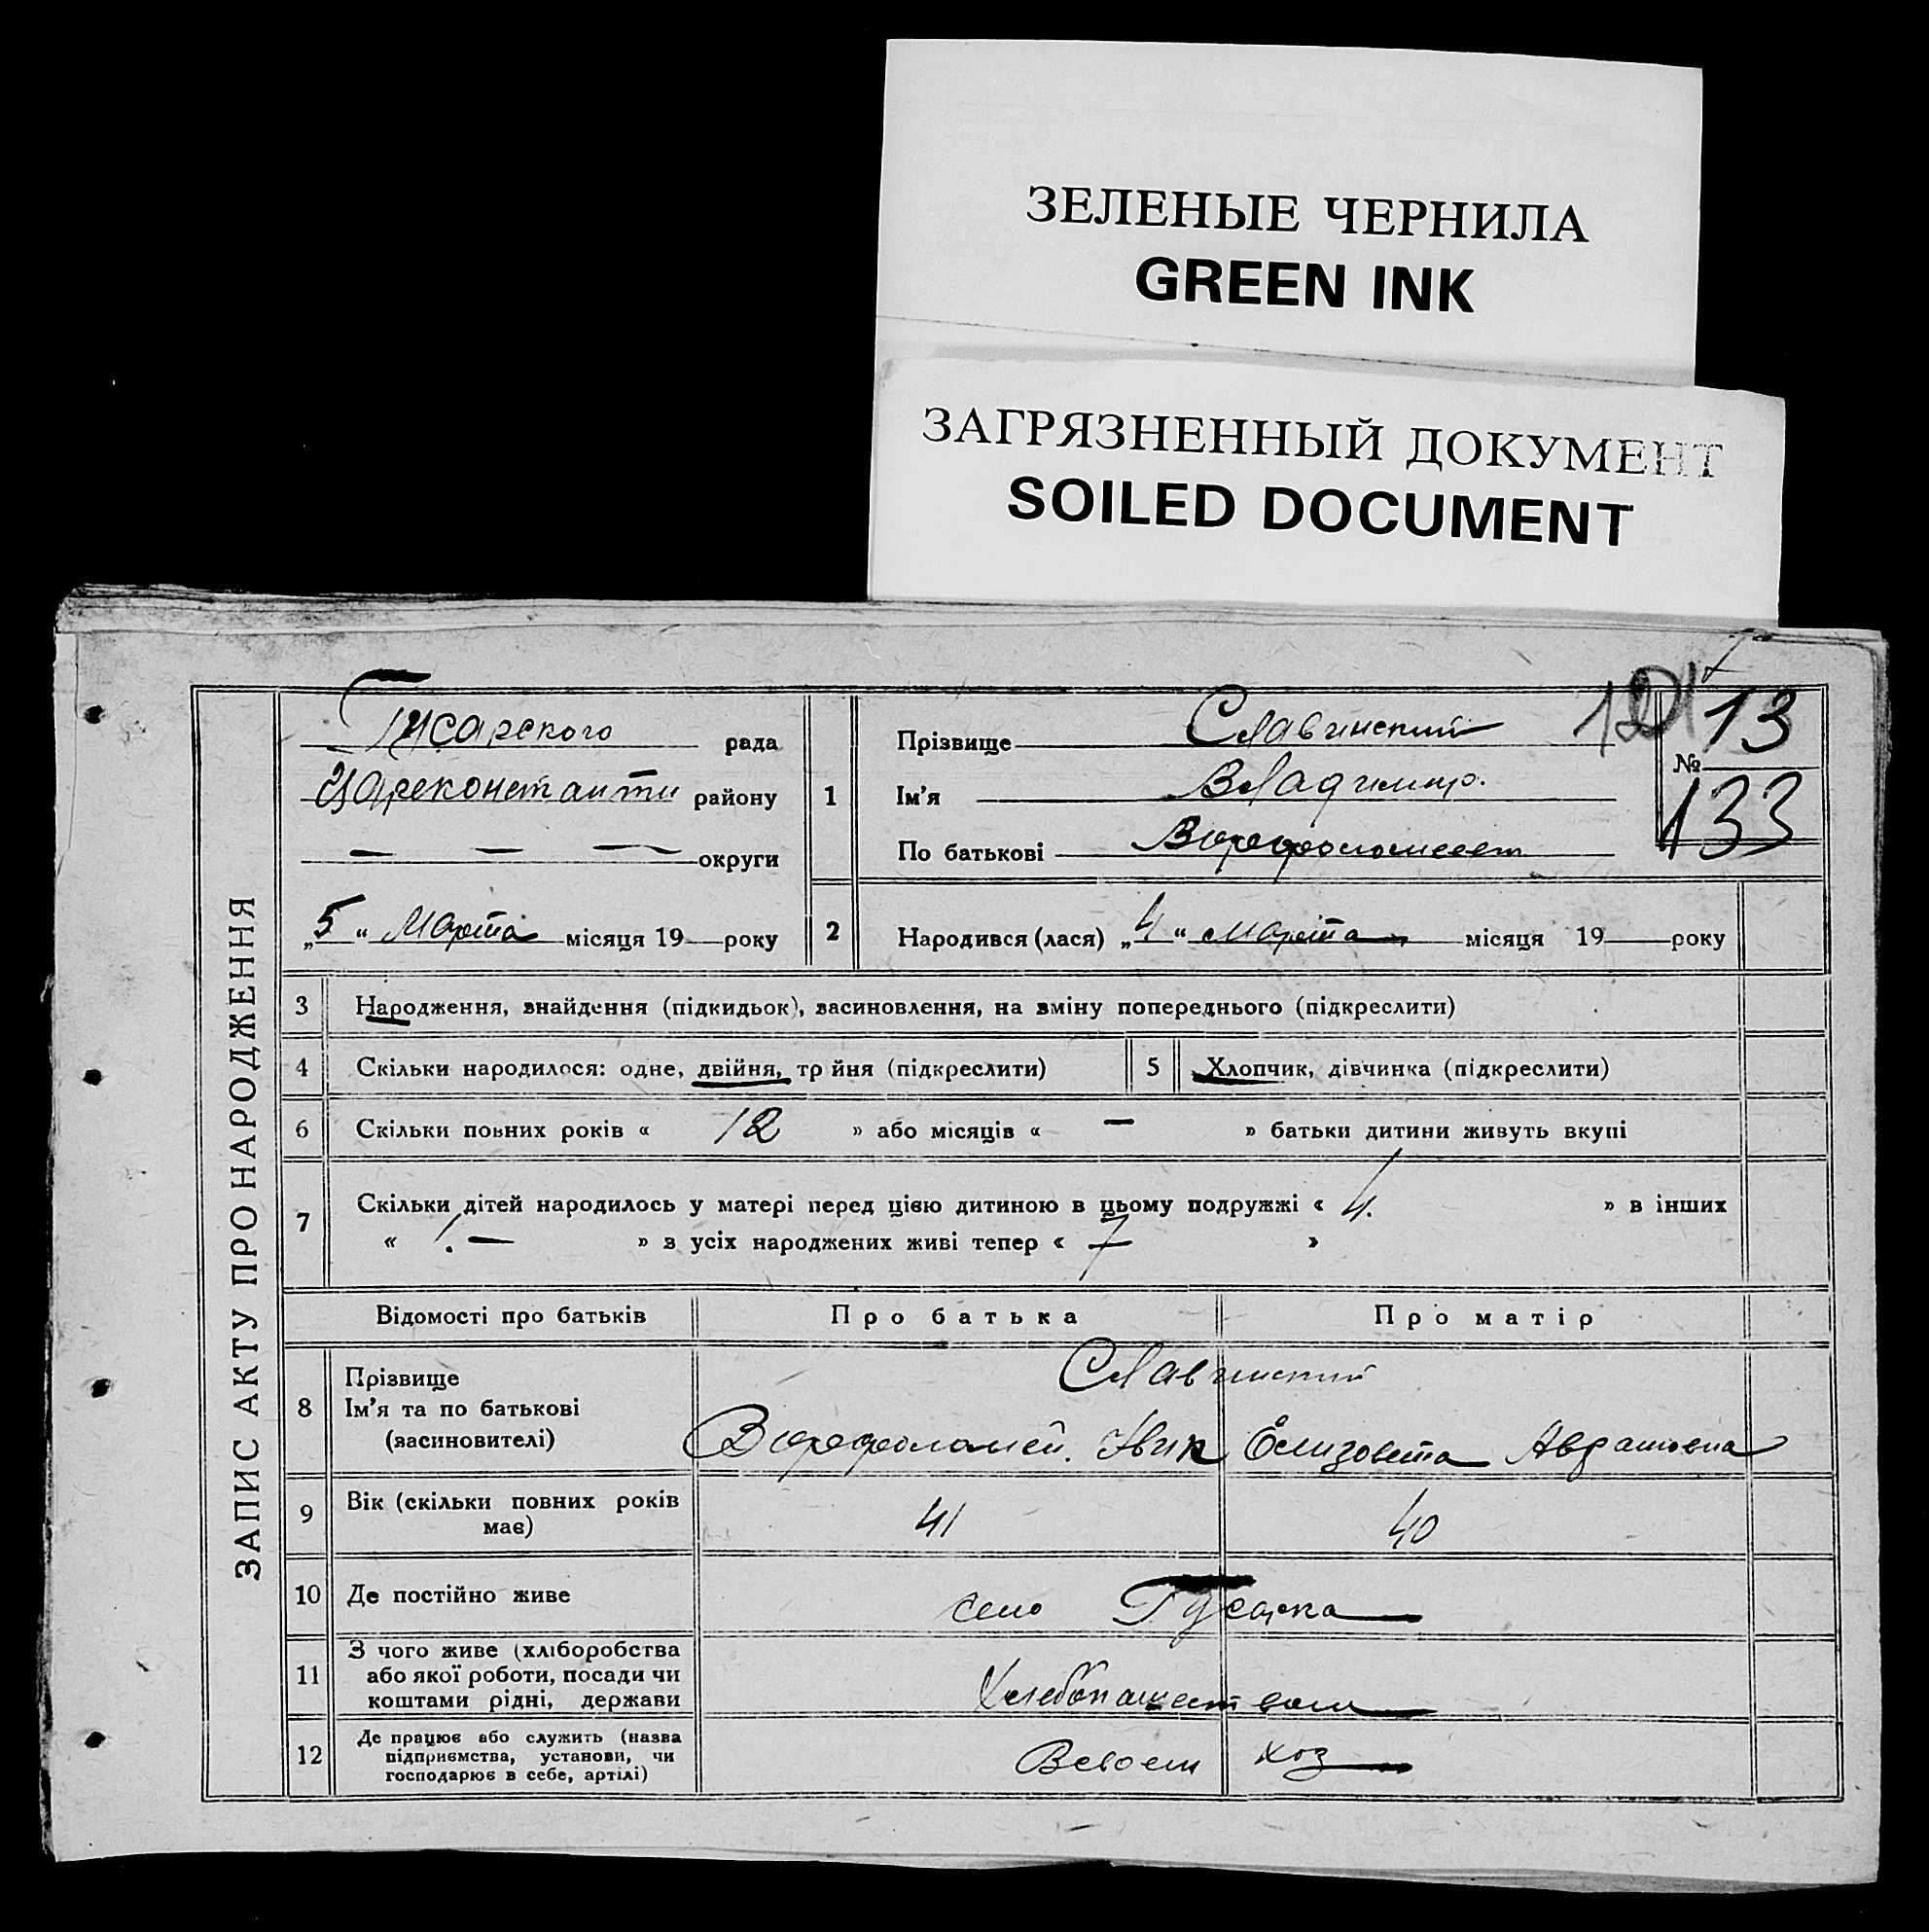 ЗЕЛЕНЫЕ ЧЕРНИЛА
GREEN INK
ЗАГРЯЗНЕННЫЙ ДОКУМЕНТ
SOILED DOCUMENT
ЗАПИС АКТУ ПРО НАРОДЖЕННЯ
Гусарского рада
Цареконстанти району
— — — округи
„5“ Марта місяця 19 — року
1
Прізвище Славинский
Ім'я Владимир.
По батькові
121
№ 13
133
2 Народився (лася) „4“ марта місяця 19 — року
3 Народження, внайдення (підкидьок), васиновлення, на вміну попереднього (підкреслити)
4 Скільки народилося: одне, двійня, тр йня (підкреслити)
5 Хлопчик, дівчинка (підкреслити)
6 Скільки повних років « 12 » або місяців « — » батьки дитини живуть вкупі
7 Скільки дітей народилось у матері перед цією дитиною в цьому подружжі « 4. » в інших
« 1. — » з усіх народжених живі тепер « »
Відомості про батьків Про батька Про матір
8 Прізвище
Ім'я та по батькові
(засиновителі)
Славинский
Варфоломей. Елизовета
9 Вік (скільки повних років
має)
41 40
10 Де постійно живе
село Гусарка
11 З чого живе (хліборобства
або якої роботи, посади чи
коштами рідні, держави
Хлебопашеством
12 Де працює або служить (назва
підприємства, установи, чи
господарює в себе, артілі)
Всвоем хоз